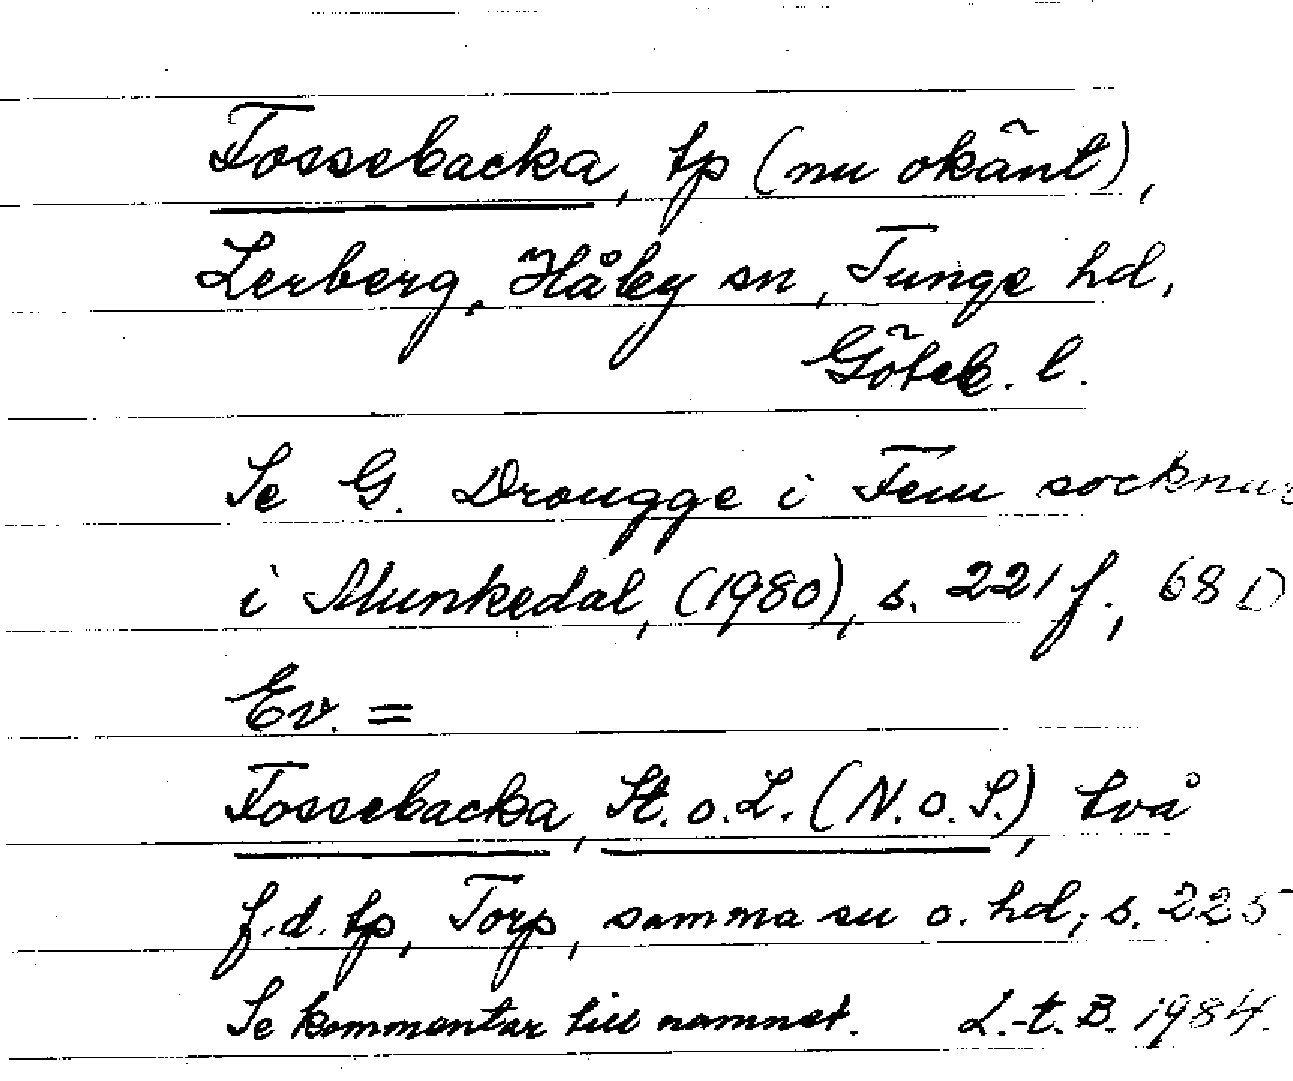 Fossebacka, tp (nu okänt),
Lerberg, Håby sn, Tunge hd,
Göteb. l.
Se G. Drougge i Fem socknar
i Munkedal, (1980), s. 221 f., 68 D
Ev. =
Fossebacka, St. o. L. (N. o. S.), två
f.d. tp, Torp, samma sn o. hd; s. 225
Se kommentar till namnet. L.-t. B. 1984.